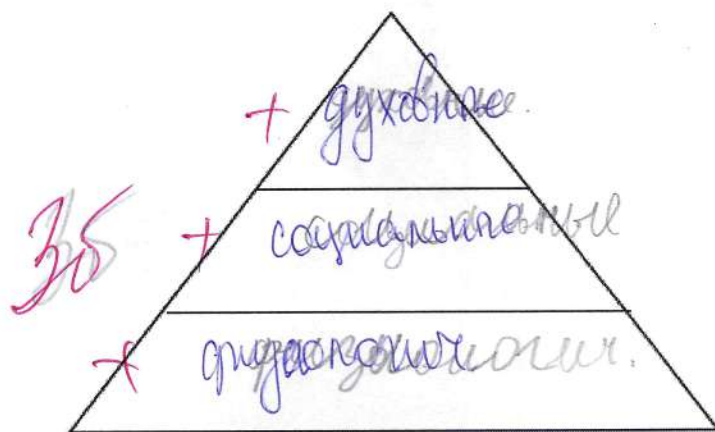 + духовные
3б
+ социальные
+ физиологич.